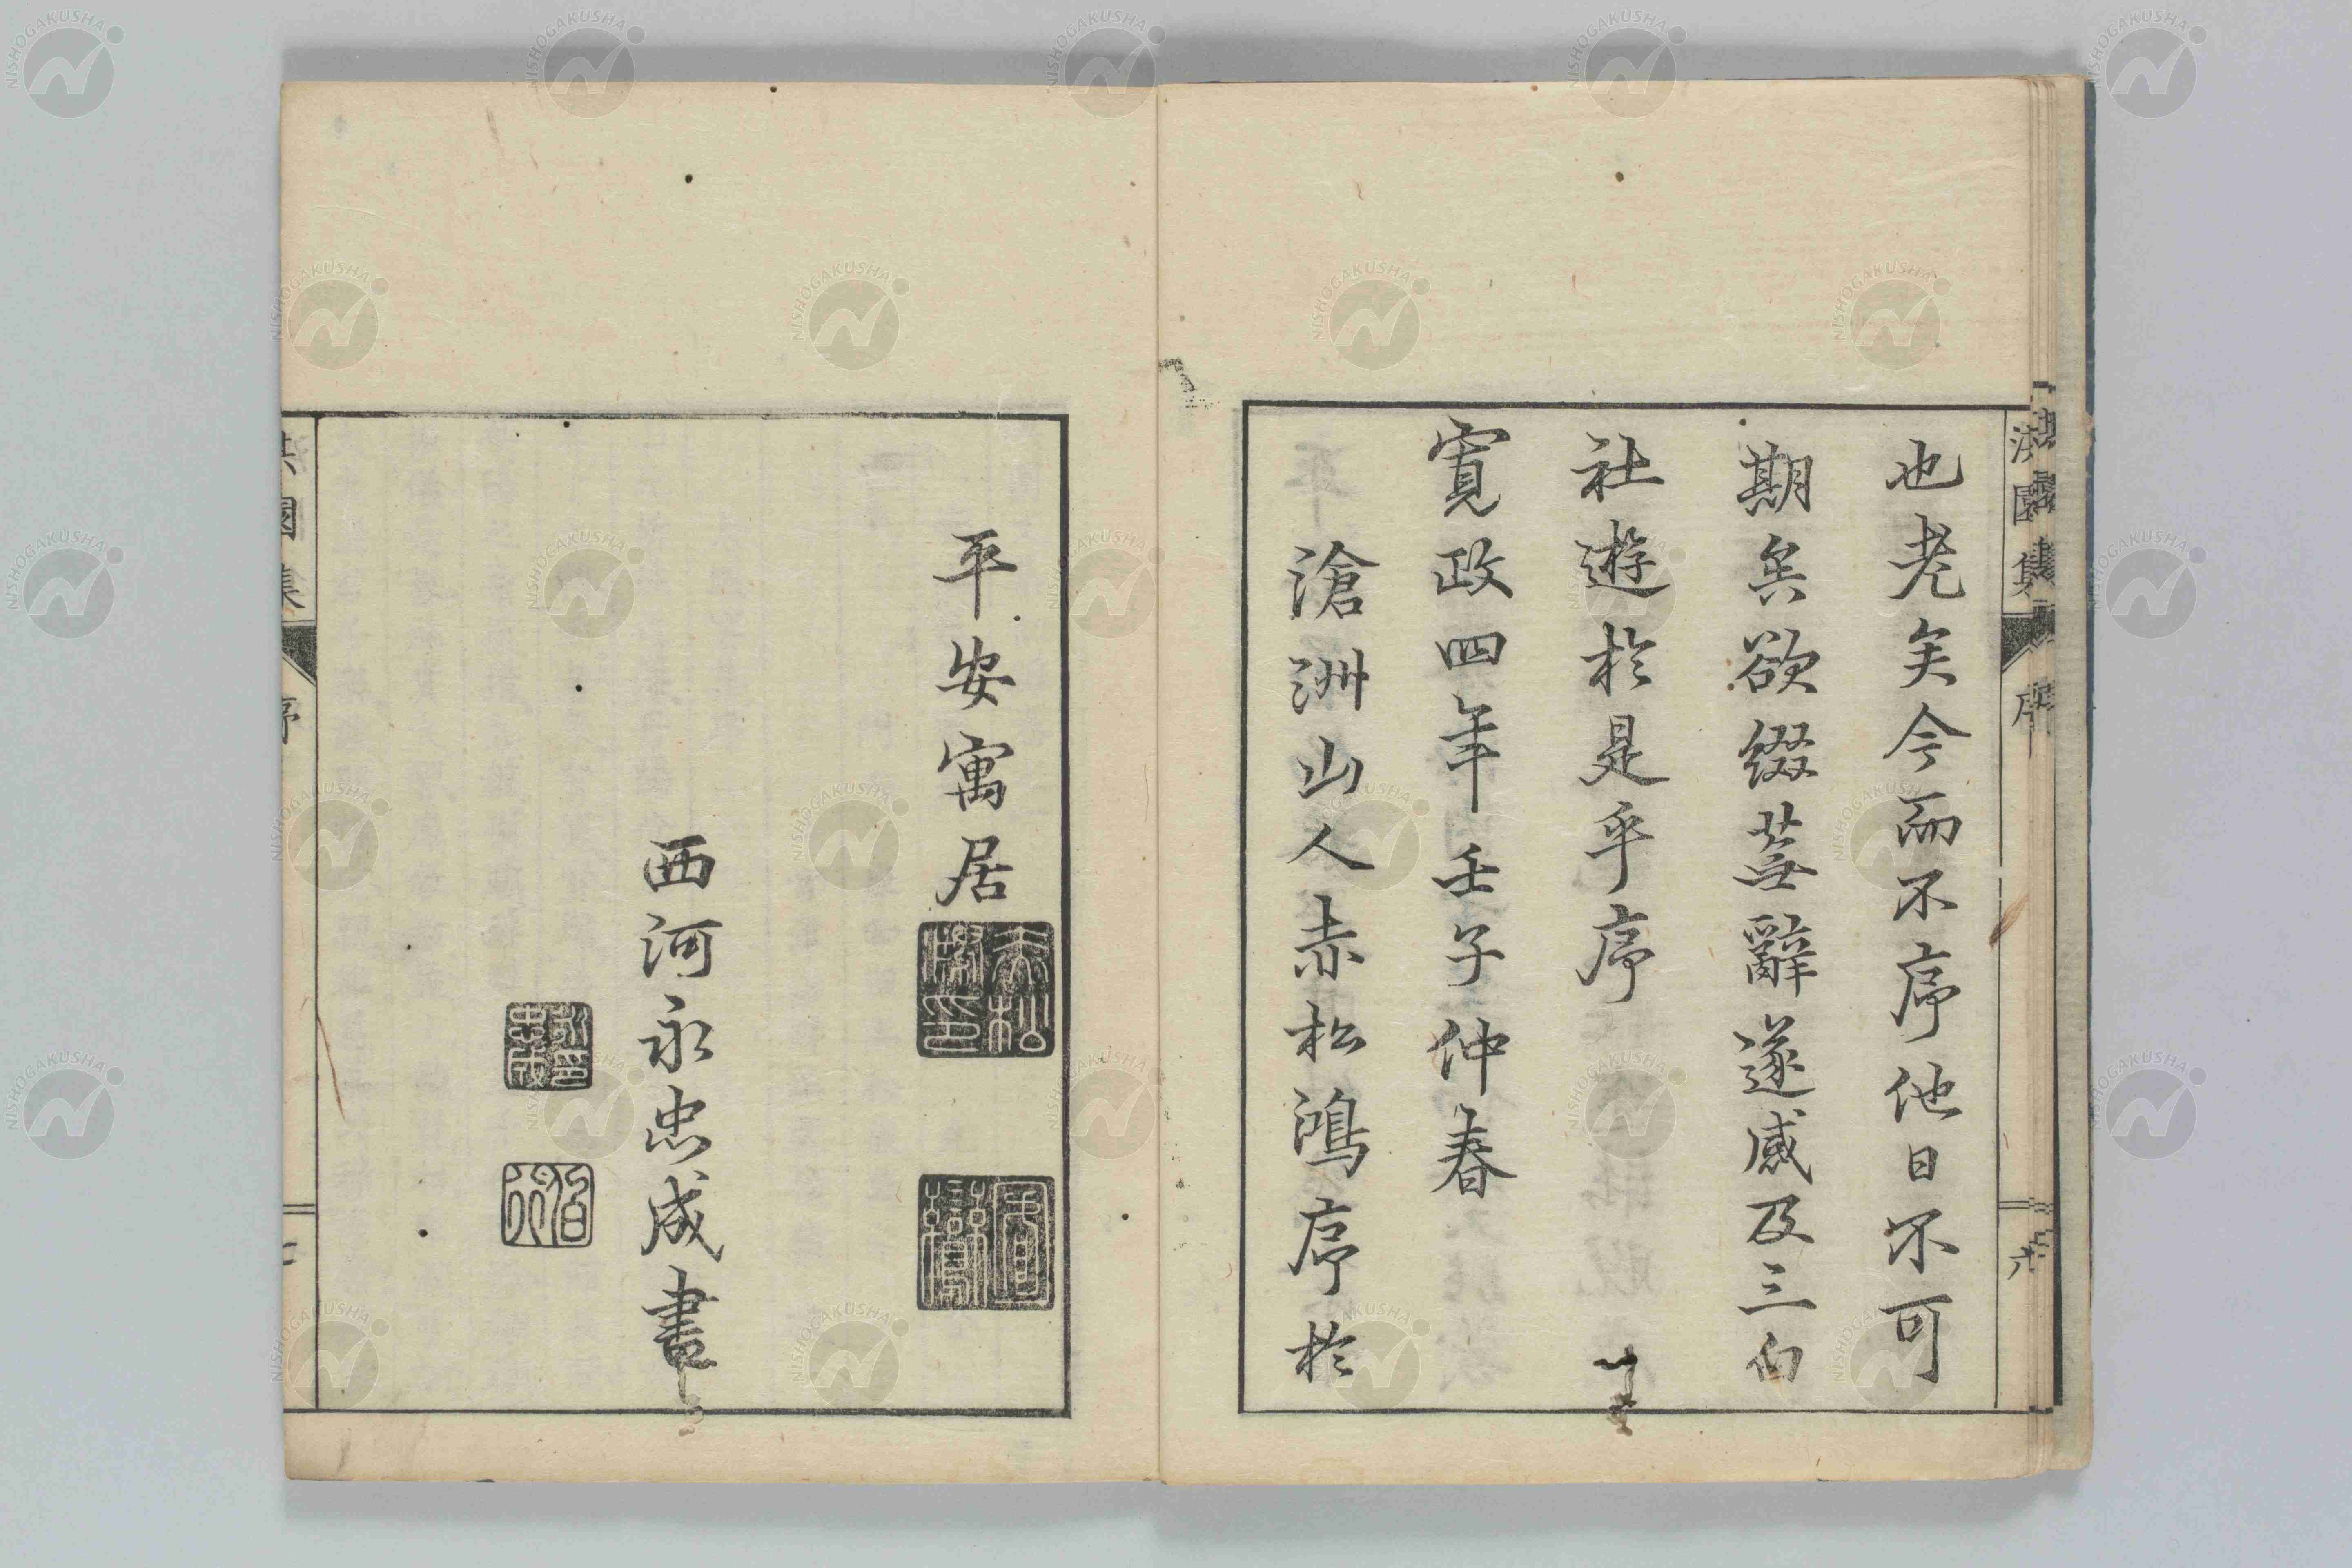 也老矣今而不序他日不可
期矣欲綴蕪辭遂感及三白
社遊於是乎序
寛政四年壬子仲春
滄洲山人赤松鴻序於
平安寓居
西河永忠成書
淇園集
序
六
淇園集
序
七
NISHOGAKUSHA